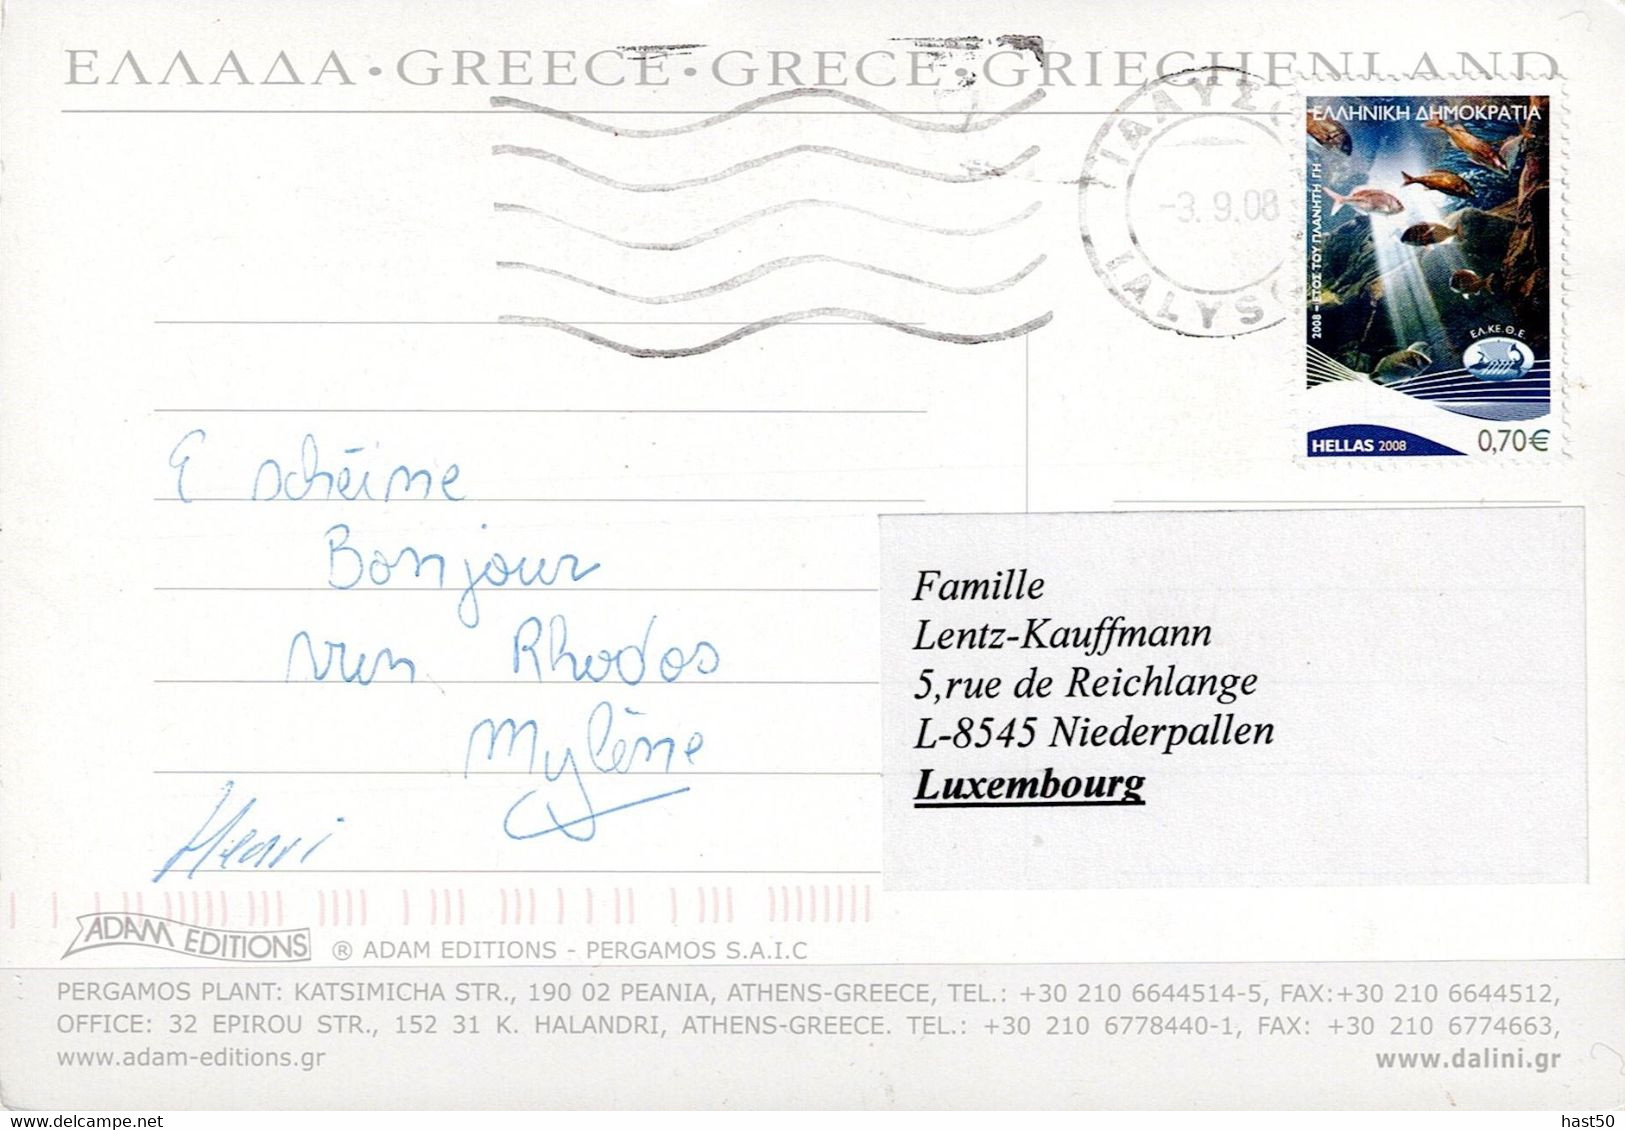 ΕΛΛΑΔΑ • GREECE • GRECE • GRIECHENLAND
ΙΑΛΥΣ
-3.9.08
IALYS
ΕΛΛΗΝΙΚΗ ΔΗΜΟΚΡΑΤΙΑ
2008 - ΕΤΟΣ ΤΟΥ ΠΛΑΝΗΤΗ ΓΗ
ΕΛ.ΚΕ.Θ.Ε.
HELLAS 2008
0,70€
E schéine
Bonjour
vun Rhodos
Mylène
Henri
Famille
Lentz-Kauffmann
5,rue de Reichlange
L-8545 Niederpallen
Luxembourg
ADAM EDITIONS
® ADAM EDITIONS - PERGAMOS S.A.I.C
PERGAMOS PLANT: KATSIMICHA STR., 190 02 PEANIA, ATHENS-GREECE, TEL.: +30 210 6644514-5, FAX:+30 210 6644512,
OFFICE: 32 EPIROU STR., 152 31 K. HALANDRI, ATHENS-GREECE. TEL.: +30 210 6778440-1, FAX: +30 210 6774663,
www.adam-editions.gr
www.dalini.gr
Bild/Foto wird urheberrechtlich geschützt
hast50